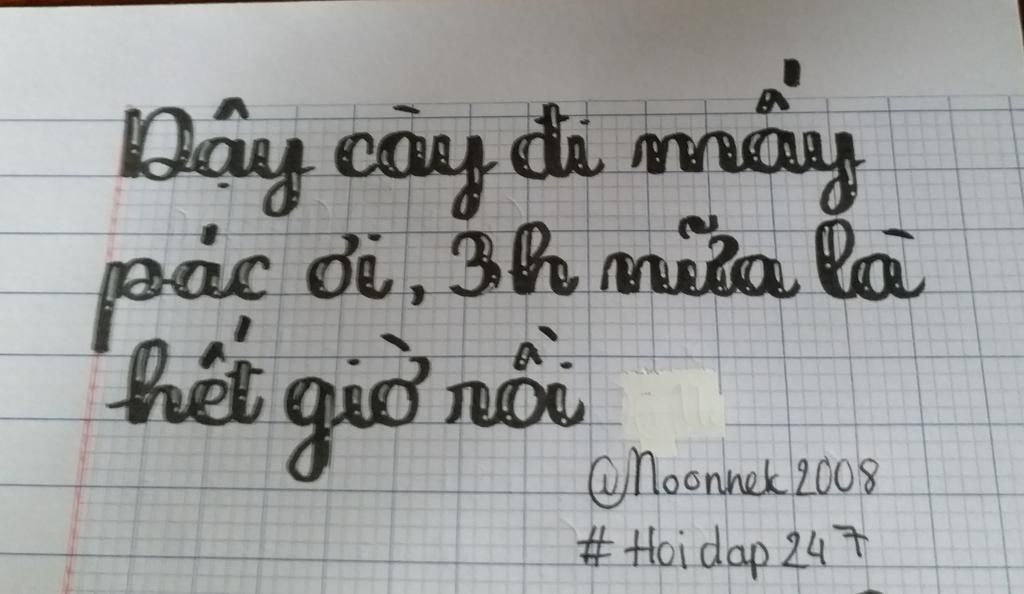 Dậy cày đi mấy
pác ơi, 3h nữa là
hết giờ rồi
@Noonnek2008
#Hoidap247